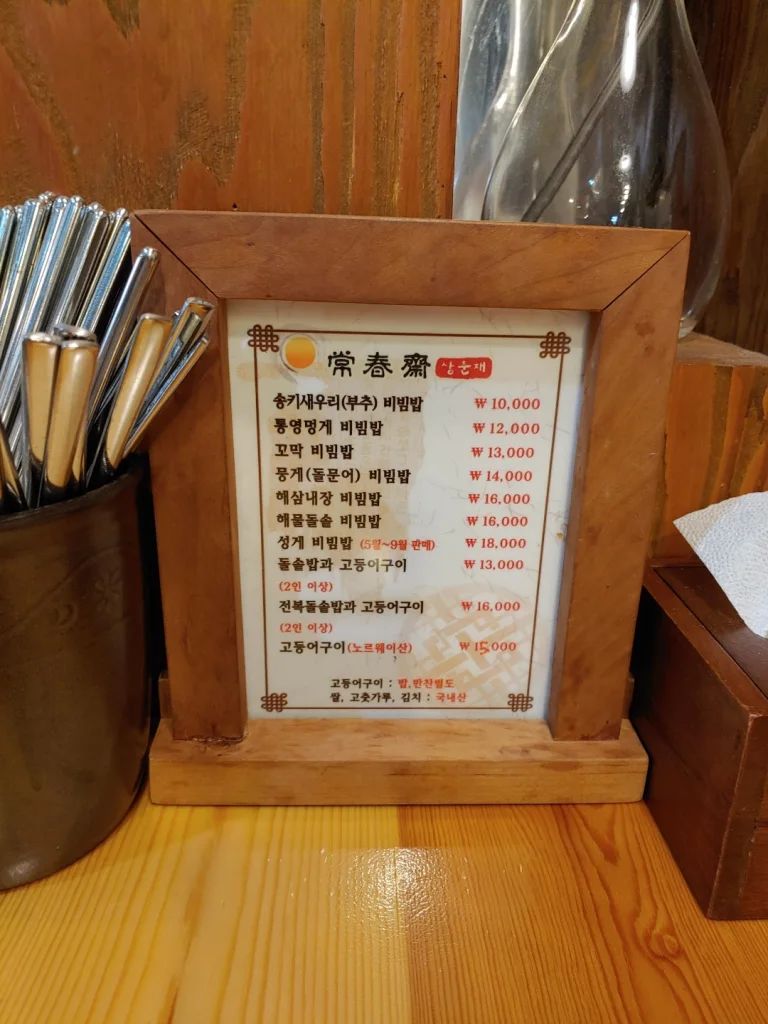 常春齋 상춘재
송키새우리(부추) 비빔밥 ₩ 10,000
통영멍게 비빔밥 ₩ 12,000
꼬막 비빔밥 ₩ 13,000
뭉게(돌문어) 비빔밥 ₩ 14,000
해삼내장 비빔밥 ₩ 16,000
해물돌솥 비빔밥 ₩ 16,000
성게 비빔밥 (5월~9월 판매) ₩ 18,000
돌솥밥과 고등어구이 ₩ 13,000
(2인 이상)
전복돌솥밥과 고등어구이 ₩ 16,000
(2인 이상)
고등어구이(노르웨이산) ₩ 15,000
고등어구이 : 밥,반찬별도
쌀, 고춧가루, 김치 : 국내산